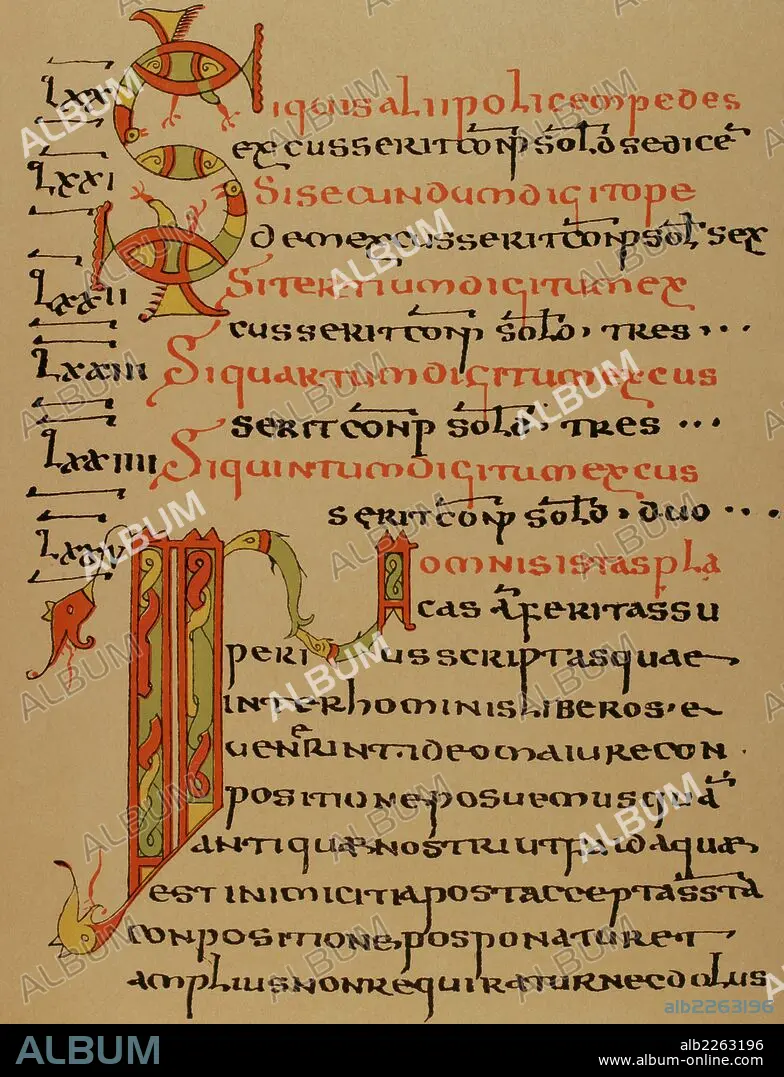 Lxx Siquis alii police m pedes
excusserit conp sold sedice
Lxxi Si secundum digito pe
dem excusserit conp sol sex
Lxxii Si tertium digitum ex
cusserit conp sold, tres, ...
Lxxiii Si quartum digitum excus
serit conp sold, tres ...
Lxxiiii Si quintum digitum excus
serit conp sold, duo ...
Lxxv In omnis istas pla
cas aferitas su
perius scriptas quae
inter hominis liberos, e
uenerint. ideo maiure con
positione posuemus qua
antiquae nostri ut faida quae
est inimicitia post accepta ssta
conpositione, posponatur et
amplius non requiratur nec dolus
alb2263196
ALBUM
alb2263196
www.album-online.com